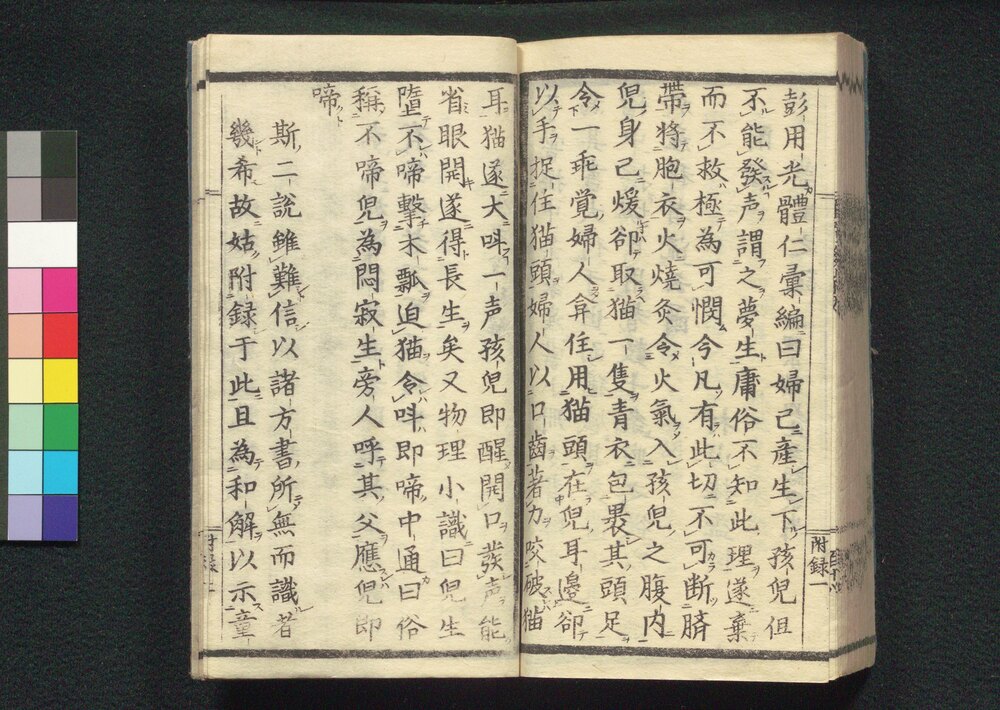 彭用光體仁彙編曰婦已產生下孩兒但
不能發声謂之夢生庸俗不知此理遂棄
而不救極為可憫今凡有此切不可断臍
帶將胞衣火燒灸令火氣入孩兒之腹内
兒身已煖卻取猫一隻青衣包裹其頭足
令一乖覚婦人拿住用猫頭在兒耳邊卻
以手捉住猫頭婦人以口齒著力咬破猫
附録一
耳猫遂大呌一声孩兒即醒開口発声能
省眼開遂得長生矣又物理小識曰兒生
墮不啼擊木瓢迫猫令呌即啼中通曰俗
稱不啼兒為悶寂生旁人呼其父應兒即
啼
斯二説雖難信以諸方書所無而識者
幾希故姑附録于此且為和解以示童